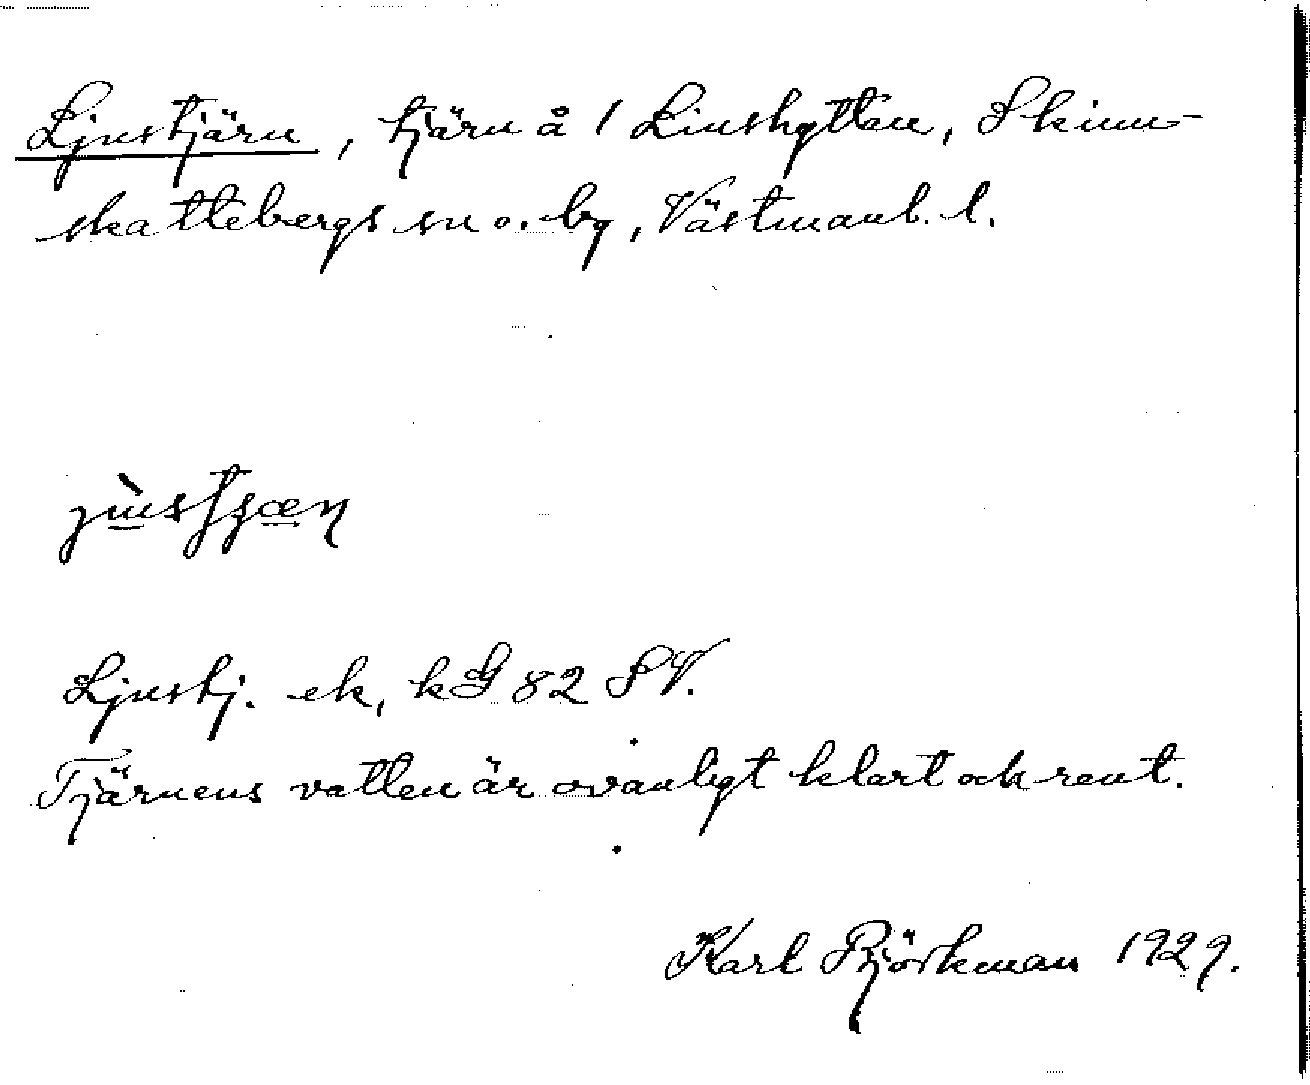 Ljustjärn, tjärn å 1 Linshyttan, Skinn-
skattebergs sn o. by, Västmanl. l.
Ljustj. ek, kG 82 SV.
Tjärnens vatten är ovanligt klart och rent.
Karl Björkman 1929.